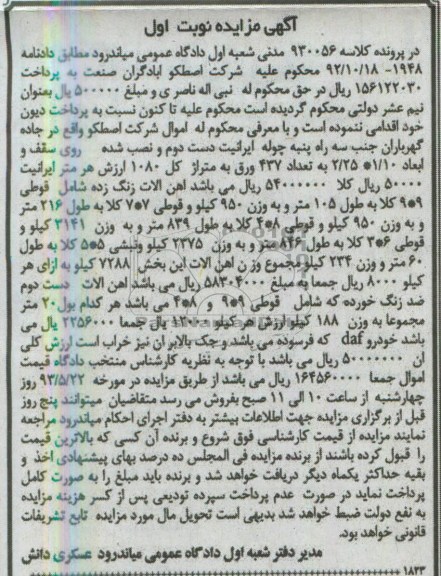 آگهی مزایده نوبت اول
در پرونده کلاسه ۹۳۰۰۵۶ مدنی شعبه اول دادگاه عمومی میاندرود مطابق دادنامه
۱۹۴۸- ۹۲/۱۰/۱۸ محکوم علیه شرکت اصطکو ابادگران صنعت به پرداخت
۱۵۶۱۲۲۰۳۰ ریال در حق محکوم له نبی اله ناصری و مبلغ ۵۰۰۰۰۰ ریال بعنوان
نیم عشر دولتی محکوم گردیده است محکوم علیه تا کنون نسبت به پرداخت دیون
خود اقدامی ننموده است و با معرفی محکوم له اموال شرکت اصطکو واقع در جاده
گهرباران جنب سه راه پنبه چوله ایرانیت دست دوم و نصب شده روی سقف و
ابعاد ۱/۱۰* ۲/۲۵ به تعداد ۴۳۷ ورق به متراژ کل ۱۰۸۰ ارزش هر متر ایرانیت
۵۰۰۰۰ ریال کلا ۵۴۰۰۰۰۰۰ ریال می باشد اهن الات زنگ زده شامل قوطی
۹*۹ کلا به طول ۱۰۵ متر و به وزن ۹۵۰ کیلو و قوطی ۷*۷ کلا به طول ۲۱۶ متر
و به وزن ۹۵۰ کیلو و قوطی ۸*۴ کلا به طول ۸۳۹ متر و به وزن ۳۱۴۱ کیلو و
قوطی ۶*۳ کلا به طول ۸۴۶ متر و به وزن ۲۳۷۵ کیلو ونبشی ۵*۵ کلا به طول
۶۰ متر و وزن ۲۳۴ کیلو مجموع وزن اهن الات این بخش ۷۲۸۸ کیلو به ازای هر
کیلو ۸۰۰۰ ریال جمعا به مبلغ ۵۸۳۰۴۰۰۰ ریال می باشد اهن الات دست دوم
ضد زنگ خورده که شامل قوطی ۹*۹ و ۸*۴ می باشد هر کدام بول ۲۰ متر
مجموعا به وزن ۱۸۸ کیلو ارزش هر کیلو ۱۲۰۰۰ ریال جمعا ۲۲۵۶۰۰۰ ریال می
باشد خودرو daf که فرسوده می باشد و جک بالابر ان نیز خراب است ارزش کلی
ان ۵۰۰۰۰۰۰۰ ریال می باشد با توجه به نظریه کارشناس منتخب دادگاه قیمت
اموال جمعا ۱۶۴۵۶۰۰۰۰ ریال می باشد از طریق مزایده در مورخه ۹۳/۵/۲۲ روز
چهارشنبه از ساعت ۱۰ الی ۱۱ صبح بفروش می رسد متقاضیان میتوانند پنج روز
قبل از برگزاری مزایده جهت اطلاعات بیشتر به دفتر اجرای احکام میاندرود مراجعه
نمایند مزایده از قیمت کارشناسی فوق شروع و برنده آن کسی که بالاترین قیمت
را قبول کرده باشند از برنده مزایده فی المجلس ده درصد بهای پیشنهادی اخذ و
بقیه حداکثر یکماه دیگر دریافت خواهد شد و برنده باید مبلغ را به صورت کامل
پرداخت نماید در صورت عدم پرداخت سپرده تودیعی پس از کسر هزینه مزایده
به نفع دولت ضبط خواهد شد بدیهی است تحویل مال مورد مزایده تابع تشریفات
قانونی خواهد بود.
مدیر دفتر شعبه اول دادگاه عمومی میاندرود عسکری دانش
۱۸۲۳